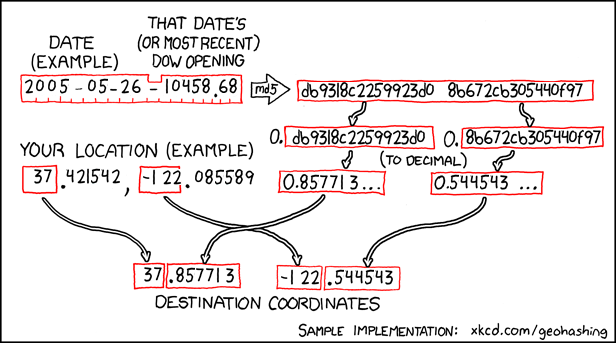 DATE
(EXAMPLE)
THAT DATE'S
(OR MOST RECENT)
DOW OPENING
2005-05-26-10458.68
md5
db9318c2259923d0 8b672cb305440f97
0.db9318c2259923d0
0.8b672cb305440f97
(TO DECIMAL)
YOUR LOCATION (EXAMPLE)
37.421542, -122.085589
0.857713...
0.544543...
37.857713
-122.544543
DESTINATION COORDINATES
SAMPLE IMPLEMENTATION: xkcd.com/geohashing